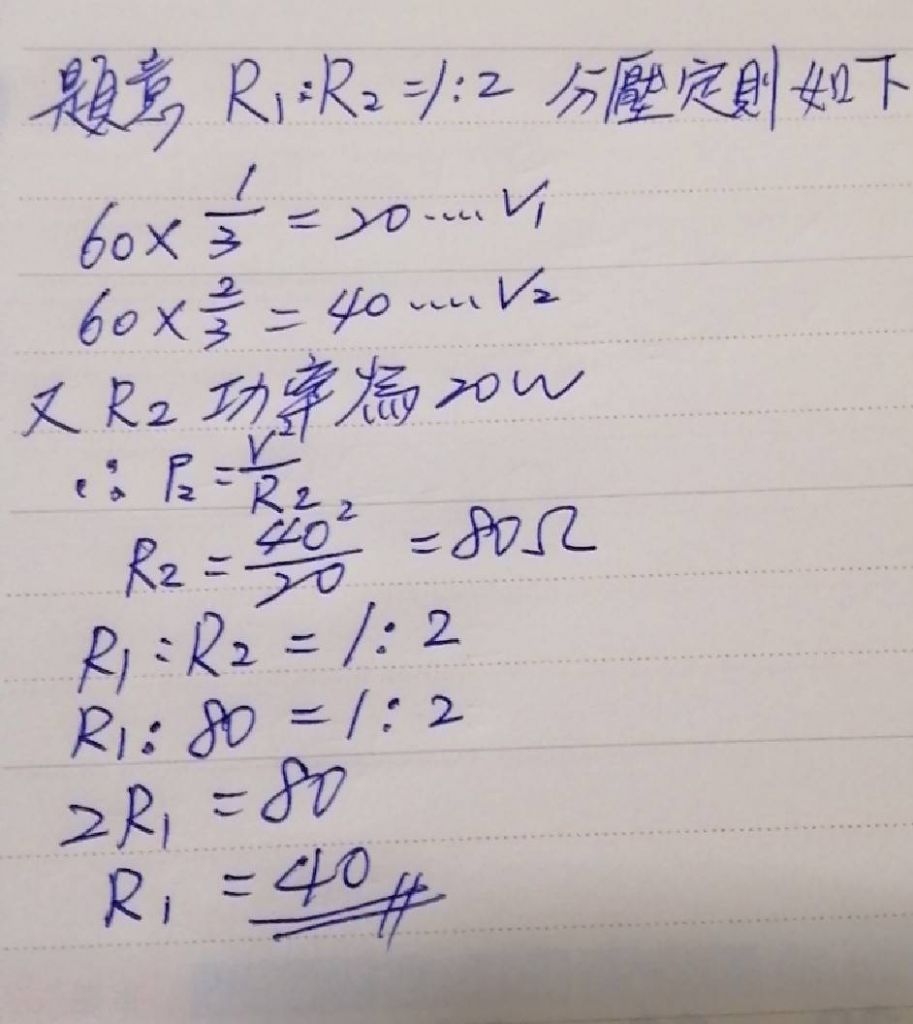 題意 R₁:R₂=1:2 分壓定則如下
60×1/3=20....V₁
60×2/3=40....V₂
又R₂功率為20W
∴ P₂=V²/R₂
R₂=40²/20=80Ω
R₁:R₂=1:2
R₁:80=1:2
2R₁=80
R₁=40